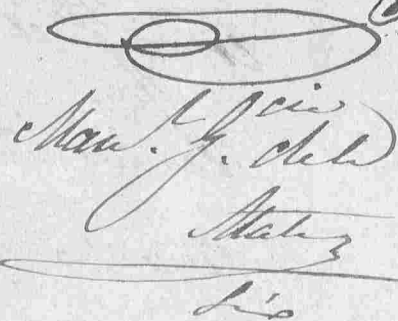 Man.l G.cia de la
Mata
Srio